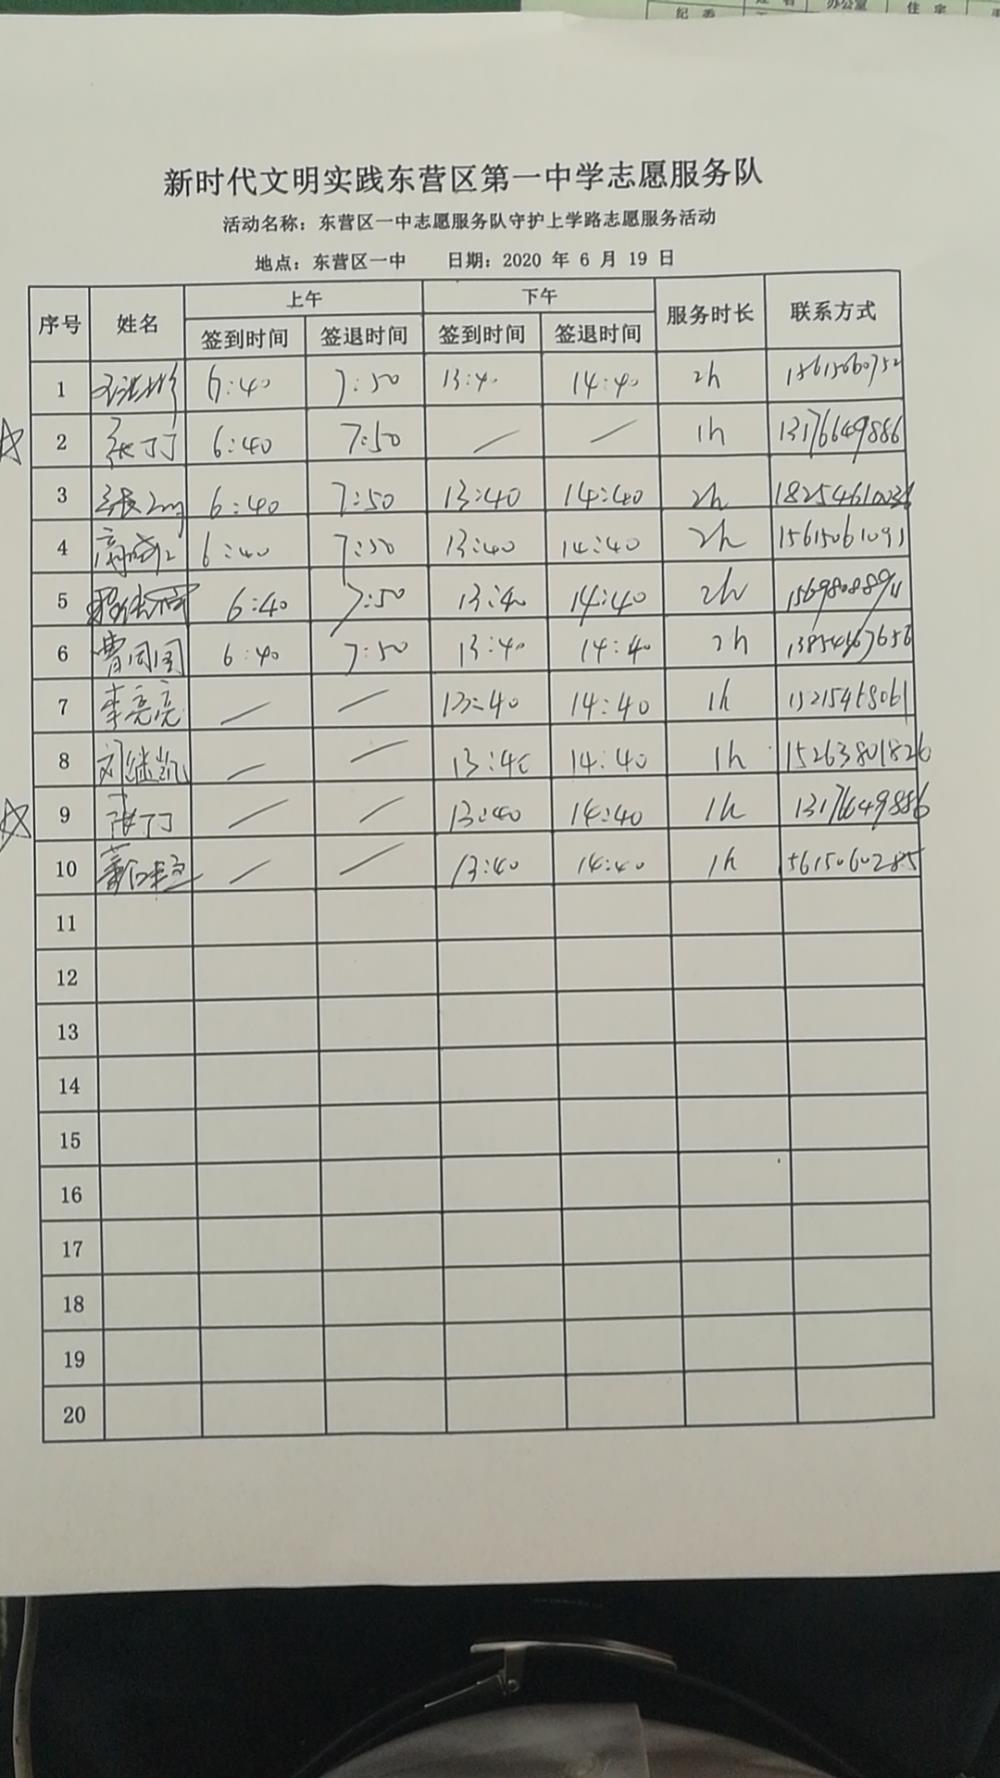 纪委 姓名 办公室 住宅
新时代文明实践东营区第一中学志愿服务队
活动名称：东营区一中志愿服务队守护上学路志愿服务活动
地点：东营区一中 日期：2020 年 6 月 19 日
序号 姓名 上午 下午 服务时长 联系方式
签到时间 签退时间 签到时间 签退时间
1 6:40 7:50 13:40 14:40 2h 15615060752
2 张丁丁 6:40 7:50 — — 1h 13176649886
3 6:40 7:50 13:40 14:40 2h
4 6:40 7:50 13:40 14:40 2h 15615061091
5 6:40 7:50 13:40 14:40 2h
6 曹团团 6:40 7:50 13:40 14:40 2h 13854667656
7 李亮亮 — — 13:40 14:40 1h 13215468061
8 刘继凯 — — 13:40 14:40 1h 15263801826
9 张丁丁 — — 13:40 14:40 1h 13176649886
10 — — 13:40 14:40 1h 15615060285
11
12
13
14
15
16
17
18
19
20